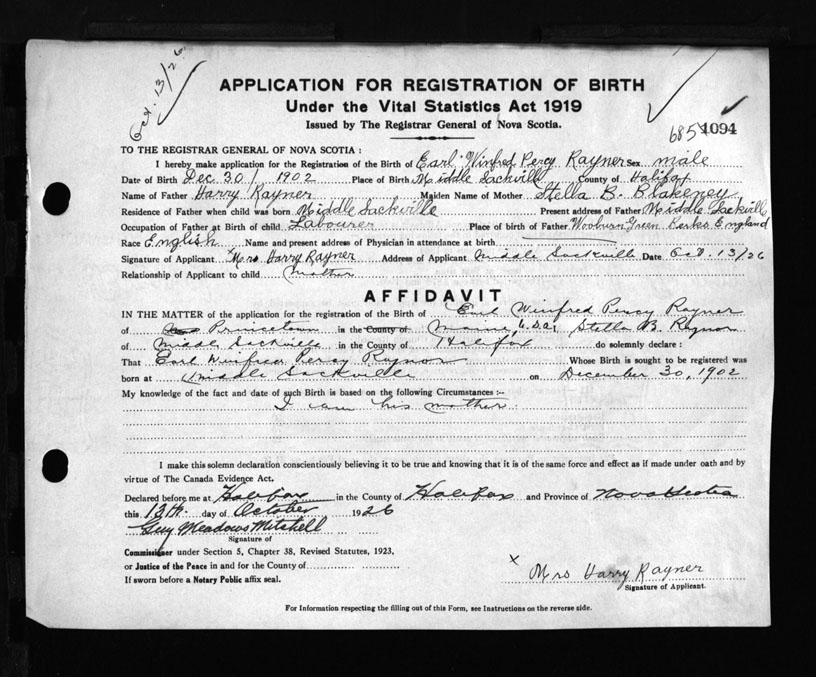 Oct. 13/26
APPLICATION FOR REGISTRATION OF BIRTH
Under the Vital Statistics Act 1919
Issued by The Registrar General of Nova Scotia.
1094
TO THE REGISTRAR GENERAL OF NOVA SCOTIA:
I hereby make application for the Registration of the Birth of Earl Winfred Percy Rayner Sex male
Date of Birth Dec 30/1902 Place of Birth Middle Sackville County of Halifax
Name of Father Harry Rayner Maiden Name of Mother Stella B. Blakeney
Residence of Father when child was born Middle Sackville Present address of Father Middle Sackville
Occupation of Father at Birth of child Labourer Place of birth of Father Wooburn Green Berks England
Race English Name and present address of Physician in attendance at birth
Signature of Applicant Mrs Harry Rayner Address of Applicant Middle Sackville Date Oct. 13/26
Relationship of Applicant to child mother
AFFIDAVIT
IN THE MATTER of the application for the registration of the Birth of Earl Winfred Percy Rayner
of Princetown in the County of Maine, U.S.A, Stella B. Raynor
of Middle Sackville in the County of Halifax do solemnly declare:
That Earl Winfred Percy Raynor Whose Birth is sought to be registered was
born at Middle Sackville on December 30, 1902
My knowledge of the fact and date of such Birth is based on the following Circumstances:–
I am his mother.
I make this solemn declaration conscientiously believing it to be true and knowing that it is of the same force and effect as if made under oath and by
virtue of The Canada Evidence Act.
Declared before me at Halifax in the County of Halifax and Province of Nova Scotia
this 13th day of October 1926
Guy Meadows Mitchell
Signature of
Commissioner under Section 5, Chapter 38, Revised Statutes, 1923,
or Justice of the Peace in and for the County of
If sworn before a Notary Public affix seal.
x Mrs Harry Rayner
Signature of Applicant.
For Information respecting the filling out of this Form, see Instructions on the reverse side.